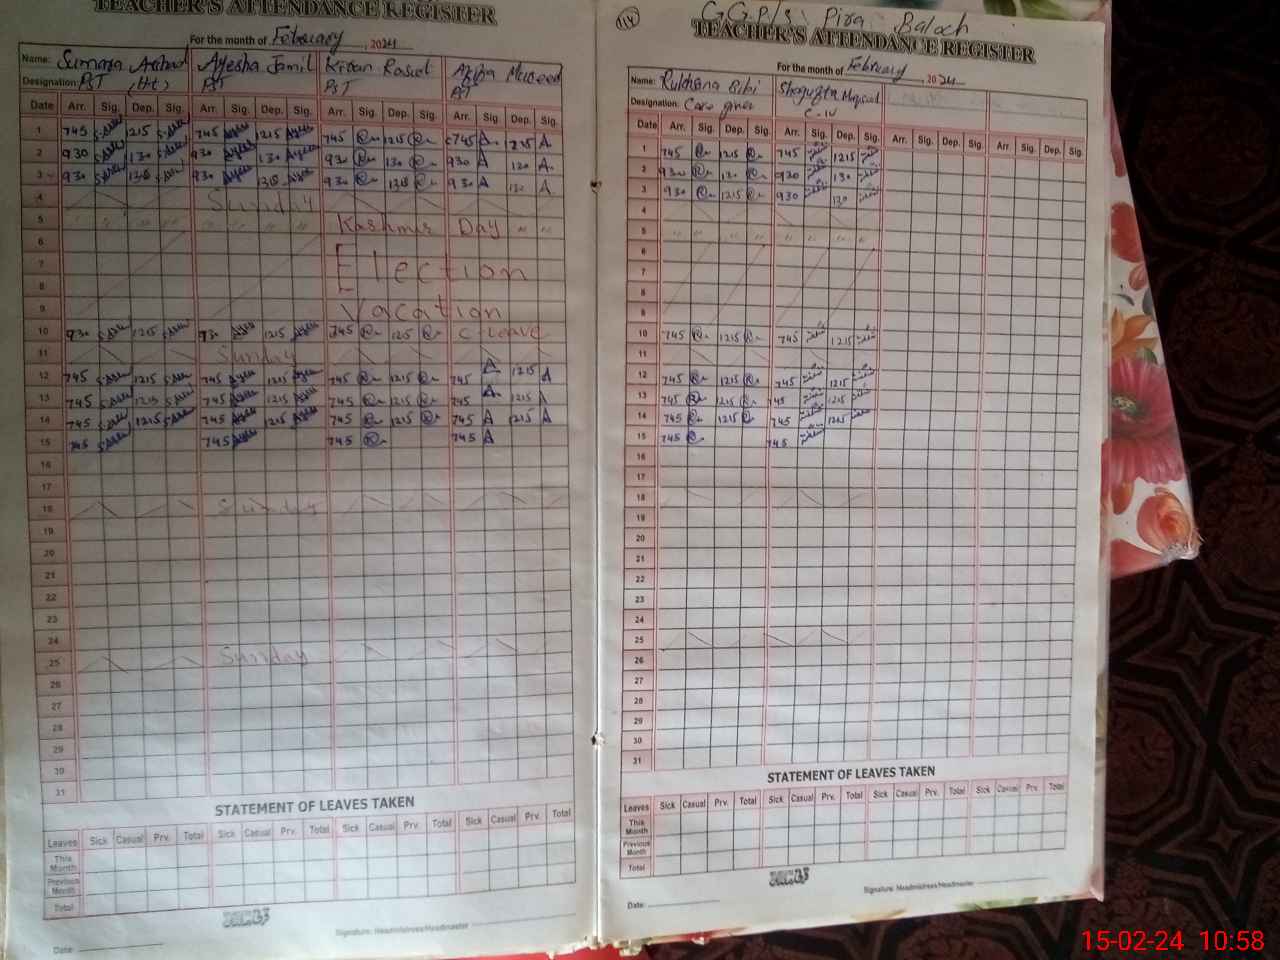 TEACHER'S ATTENDANCE REGISTER
For the month of February, 2024
Name: Sumara Arshad Ayesha Jamil Kiran Rasul Majeed
Designation: PST (Ht) PST PST PST
Date Arr. Sig. Dep. Sig. Arr. Sig. Dep. Sig. Arr. Sig. Dep. Sig. Arr. Sig. Dep. Sig.
1 745 1215 745 1215 745 1215 745 A 1215 A
2 930 130 930 130 930 130 930 A 120 A
3 930 130 930 130 930 130 930 A 130 A
4 Sunday
5 " " " " " " " " Kashmir Day " "
6
7 Election
8
9 Vacation
10 930 1215 930 1215 745 1215 C-Leave
11 Sunday
12 745 1215 745 1215 745 1215 745 A 1215 A
13 745 1215 745 1215 745 1215 745 A 1215 A
14 745 1215 745 1215 745 1215 745 A 1215 A
15 745 745 745 745 A
16
17
18 Sunday
19
20
21
22
23
24
25 Sunday
26
27
28
29
30
31
STATEMENT OF LEAVES TAKEN
Leaves Sick Casual Prv. Total Sick Casual Prv. Total Sick Casual Prv. Total Sick Casual Prv. Total
This Month
Previous Month
Total
Date:
Signature: Headmistress/Headmaster
114 G.G.P/S Pira Baloch
TEACHER'S ATTENDANCE REGISTER
For the month of February, 2024
Name: Rukhsana Bibi Shagufta Maqsood
Designation: Care giver C-IV
Date Arr. Sig. Dep. Sig. Arr. Sig. Dep. Sig. Arr. Sig. Dep. Sig. Arr. Sig. Dep. Sig.
1 745 1215 745 1215
2 930 130 930 130
3 930 1215 930 130
4
5 " " " " " " " "
6
7
8
9
10 745 1215 745 1215
11
12 745 1215 745 1215
13 745 1215 745 1215
14 745 1215 745 1215
15 745 745
16
17
18
19
20
21
22
23
24
25
26
27
28
29
30
31
STATEMENT OF LEAVES TAKEN
Leaves Sick Casual Prv. Total Sick Casual Prv. Total Sick Casual Prv. Total Sick Casual Prv. Total
This Month
Previous Month
Total
Date:
Signature: Headmistress/Headmaster
15-02-24 10:58